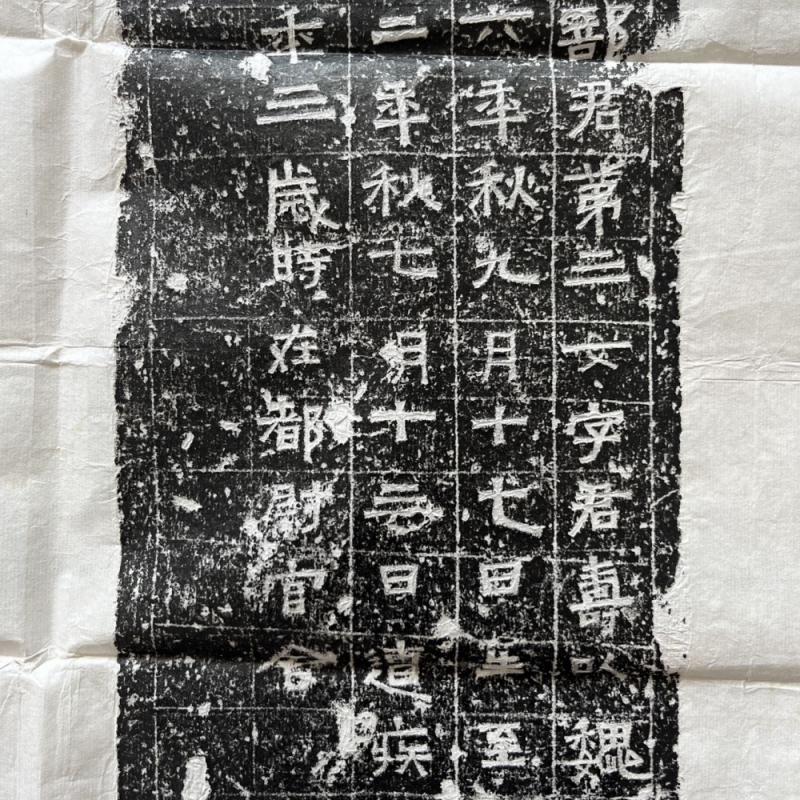 君第二女字君壽以魏
六年秋九月十七日生至
二年秋七月十日遭疾
年三歲時在都尉官舍